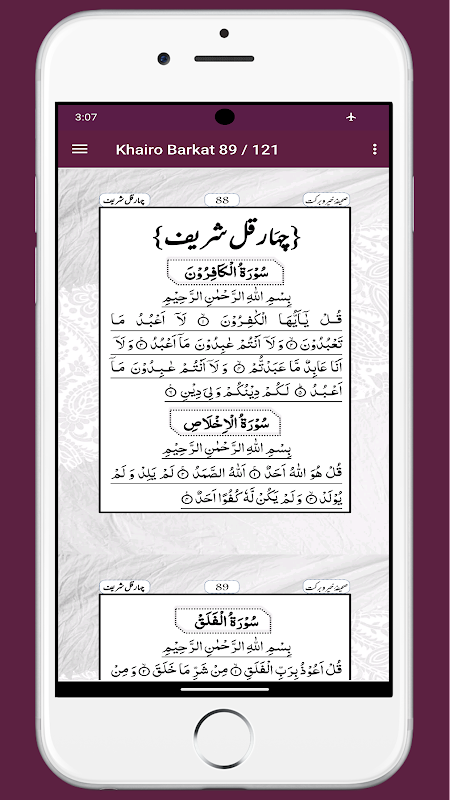 3:07
Khairo Barkat 89 / 121
صحیفۂ خیر و برکت 88 چہار قل شریف
{چہار قل شریف}
سُوْرَةُ الْكَافِرُوْنَ
بِسْمِ اللهِ الرَّحْمٰنِ الرَّحِيْمِ
قُلْ يٰٓاَيُّهَا الْكٰفِرُوْنَ ۝۱ لَآ اَعْبُدُ مَا
تَعْبُدُوْنَ ۝۲ وَلَآ اَنْتُمْ عٰبِدُوْنَ مَآ اَعْبُدُ ۝۳ وَلَآ
اَنَا عَابِدٌ مَّا عَبَدْتُّمْ ۝۴ وَلَآ اَنْتُمْ عٰبِدُوْنَ مَآ
اَعْبُدُ ۝۵ لَكُمْ دِيْنُكُمْ وَلِيَ دِيْنِ ۝۶
سُوْرَةُ الْاِخْلَاصِ
بِسْمِ اللهِ الرَّحْمٰنِ الرَّحِيْمِ
قُلْ هُوَ اللهُ اَحَدٌ ۝۱ اَللهُ الصَّمَدُ ۝۲ لَمْ يَلِدْ وَلَمْ
يُوْلَدْ ۝۳ وَلَمْ يَكُنْ لَّهٗ كُفُوًا اَحَدٌ ۝۴
صحیفۂ خیر و برکت 89 چہار قل شریف
سُوْرَةُ الْفَلَقِ
بِسْمِ اللهِ الرَّحْمٰنِ الرَّحِيْمِ
قُلْ اَعُوْذُ بِرَبِّ الْفَلَقِ ۝۱ مِنْ شَرِّ مَا خَلَقَ ۝۲ وَمِنْ